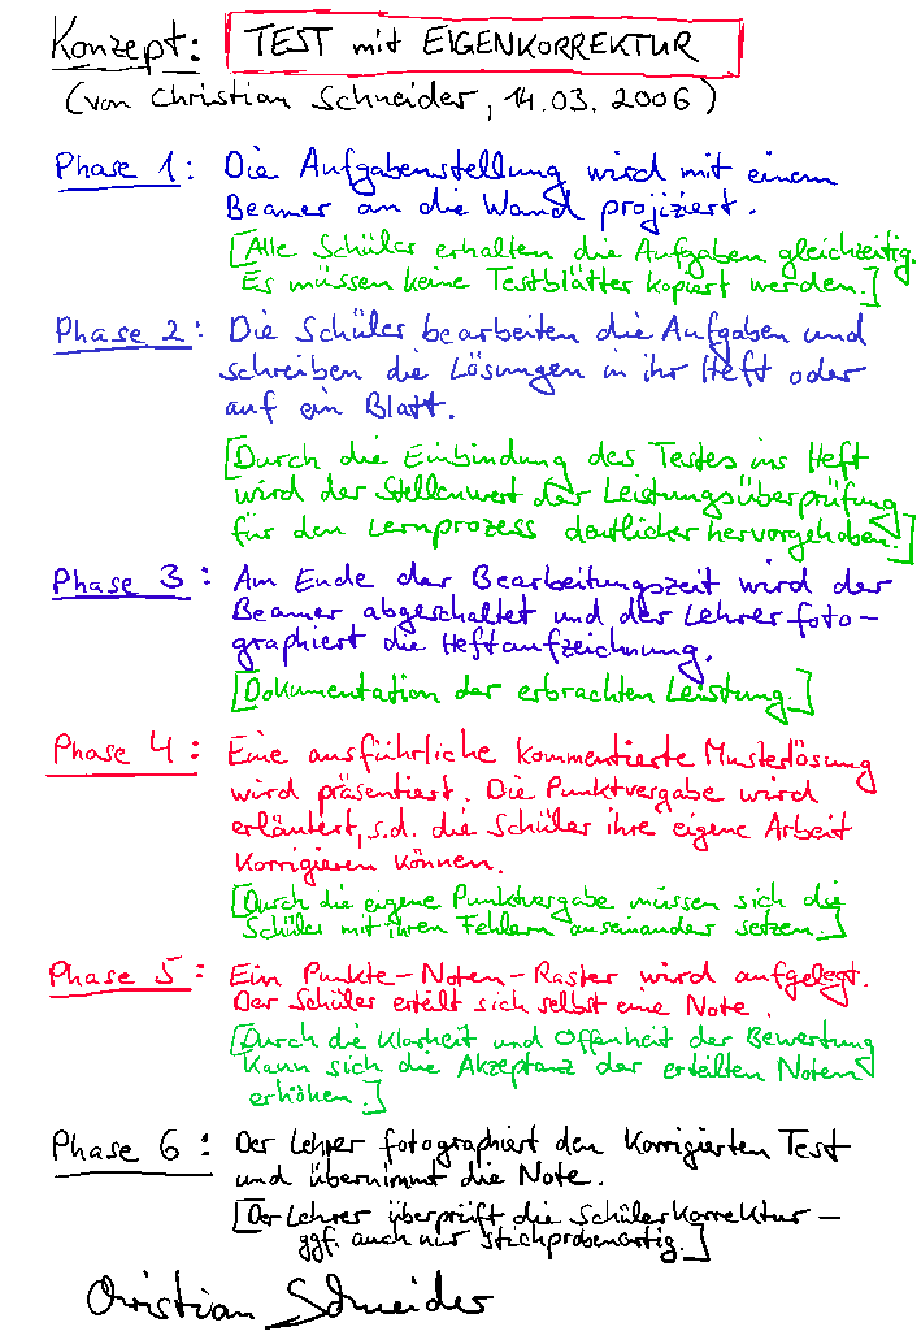 Konzept: TEST mit EIGENKORREKTUR
(von Christian Schneider, 14.03.2006)
Phase 1: Die Aufgabenstellung wird mit einem
Beamer an die Wand projiziert.
[Alle Schüler erhalten die Aufgaben gleichzeitig.
Es müssen keine Testblätter kopiert werden.]
Phase 2: Die Schüler bearbeiten die Aufgaben und
schreiben die Lösungen in ihr Heft oder
auf ein Blatt.
[Durch die Einbindung des Testes ins Heft
wird der Stellenwert der Leistungsüberprüfung
für den Lernprozess deutlicher hervorgehoben.]
Phase 3: Am Ende der Bearbeitungszeit wird der
Beamer abgeschaltet und der Lehrer foto-
graphiert die Heftaufzeichnung.
[Dokumentation der erbrachten Leistung.]
Phase 4: Eine ausführliche kommentierte Musterlösung
wird präsentiert. Die Punktvergabe wird
erläutert, s.d. die Schüler ihre eigene Arbeit
korrigieren können.
[Durch die eigene Punktvergabe müssen sich die
Schüler mit ihren Fehlern auseinander setzen.]
Phase 5: Ein Punkte-Noten-Raster wird aufgelegt.
Der Schüler erteilt sich selbst eine Note.
[Durch die Klarheit und Offenheit der Bewertung
kann sich die Akzeptanz der erteilten Noten
erhöhen.]
Phase 6: Der Lehrer fotographiert den korrigierten Test
und übernimmt die Note.
[Der Lehrer überprüft die Schülerkorrektur -
ggf. auch nur stichprobenartig.]
Christian Schneider